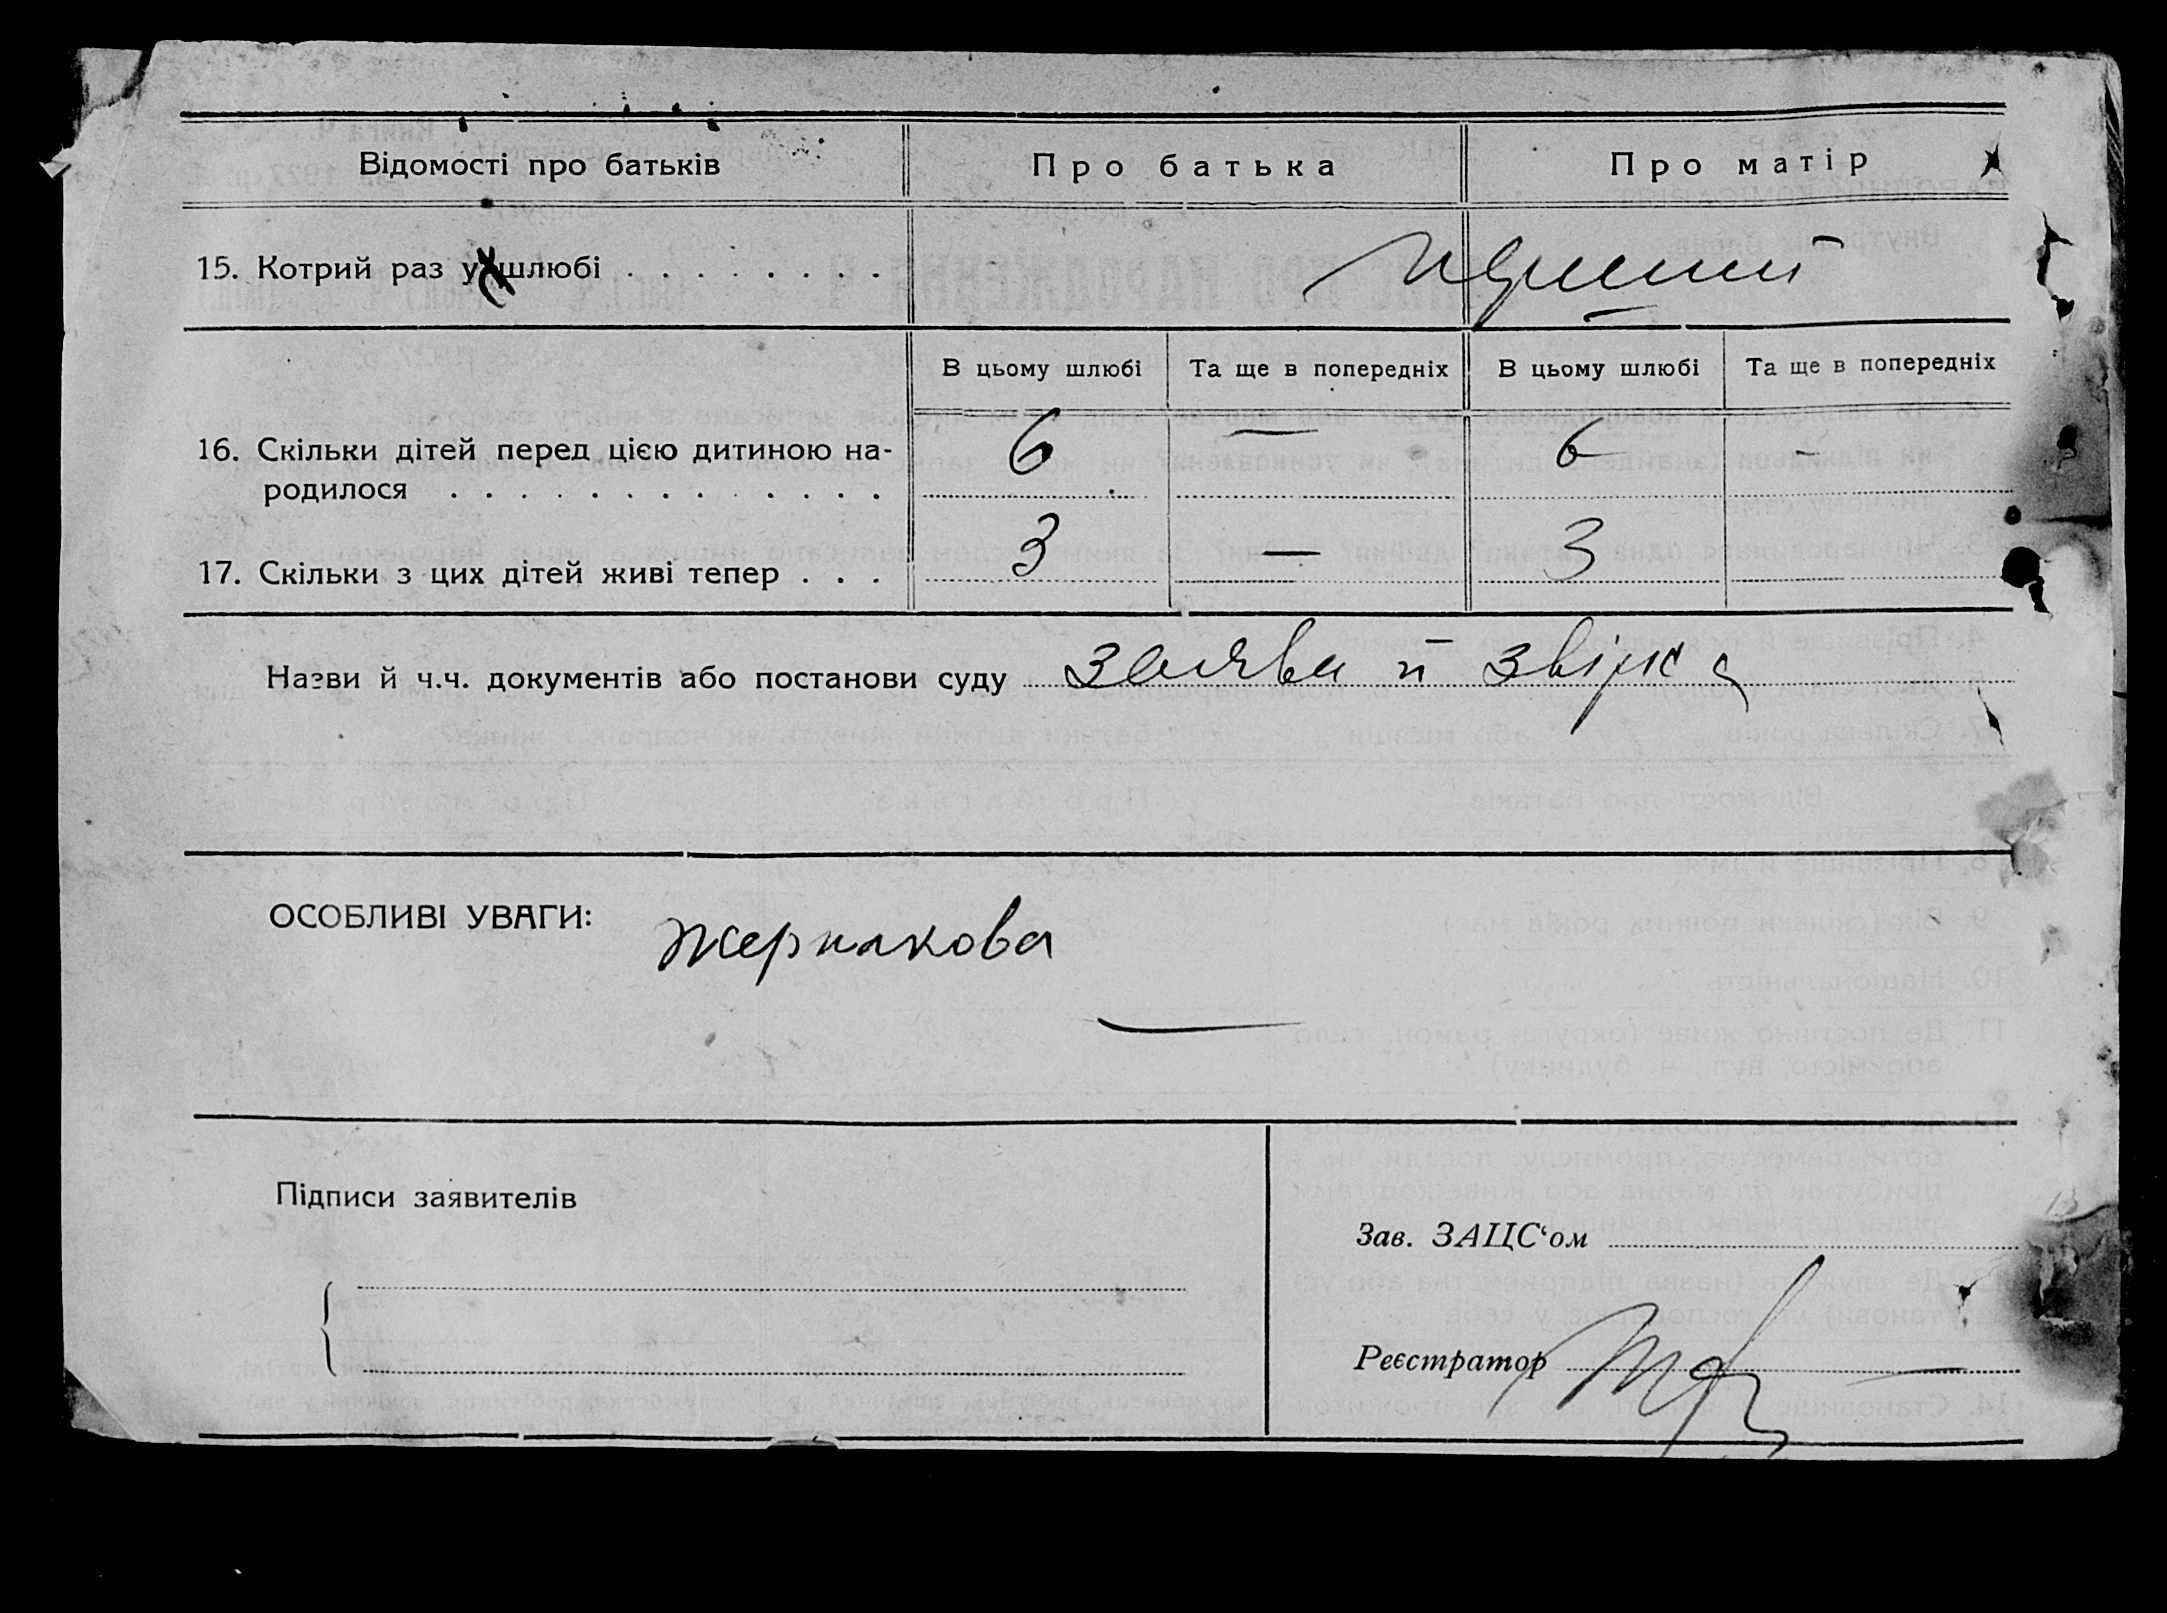 Відомості про батьків Про батька Про матір
15. Котрий раз у шлюбі . . . . . . . . перший
В цьому шлюбі Та ще в попередніх В цьому шлюбі Та ще в попередніх
16. Скільки дітей перед цією дитиною на- 6 — 6 -
родилося . . . . . . . . . . . . .
17. Скільки з цих дітей живі тепер . . . 3 — 3
Назви й ч.ч. документів або постанови суду заява й звірка
ОСОБЛИВІ УВАГИ: Жернакова
Підписи заявителів
Зав. ЗАЦС'ом
Реєстратор